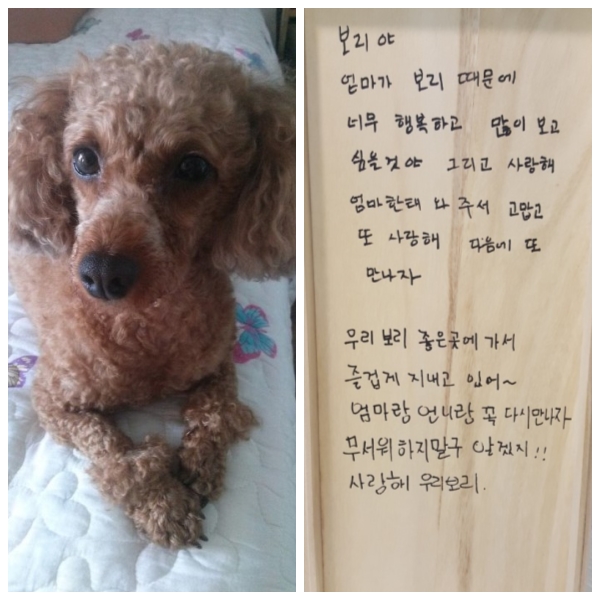 보리야
엄마가 보리 때문에
너무 행복하고 많이 보고
싶을것야 그리고 사랑해
엄마한태 와 주서 고맙고
또 사랑해 다음에 또
만나자
우리 보리 좋은곳에 가서
즐겁게 지내고 있어~
엄마랑 언니랑 꼭 다시만나자
무서워하지말구 알겠지!!
사랑해 우리보리.